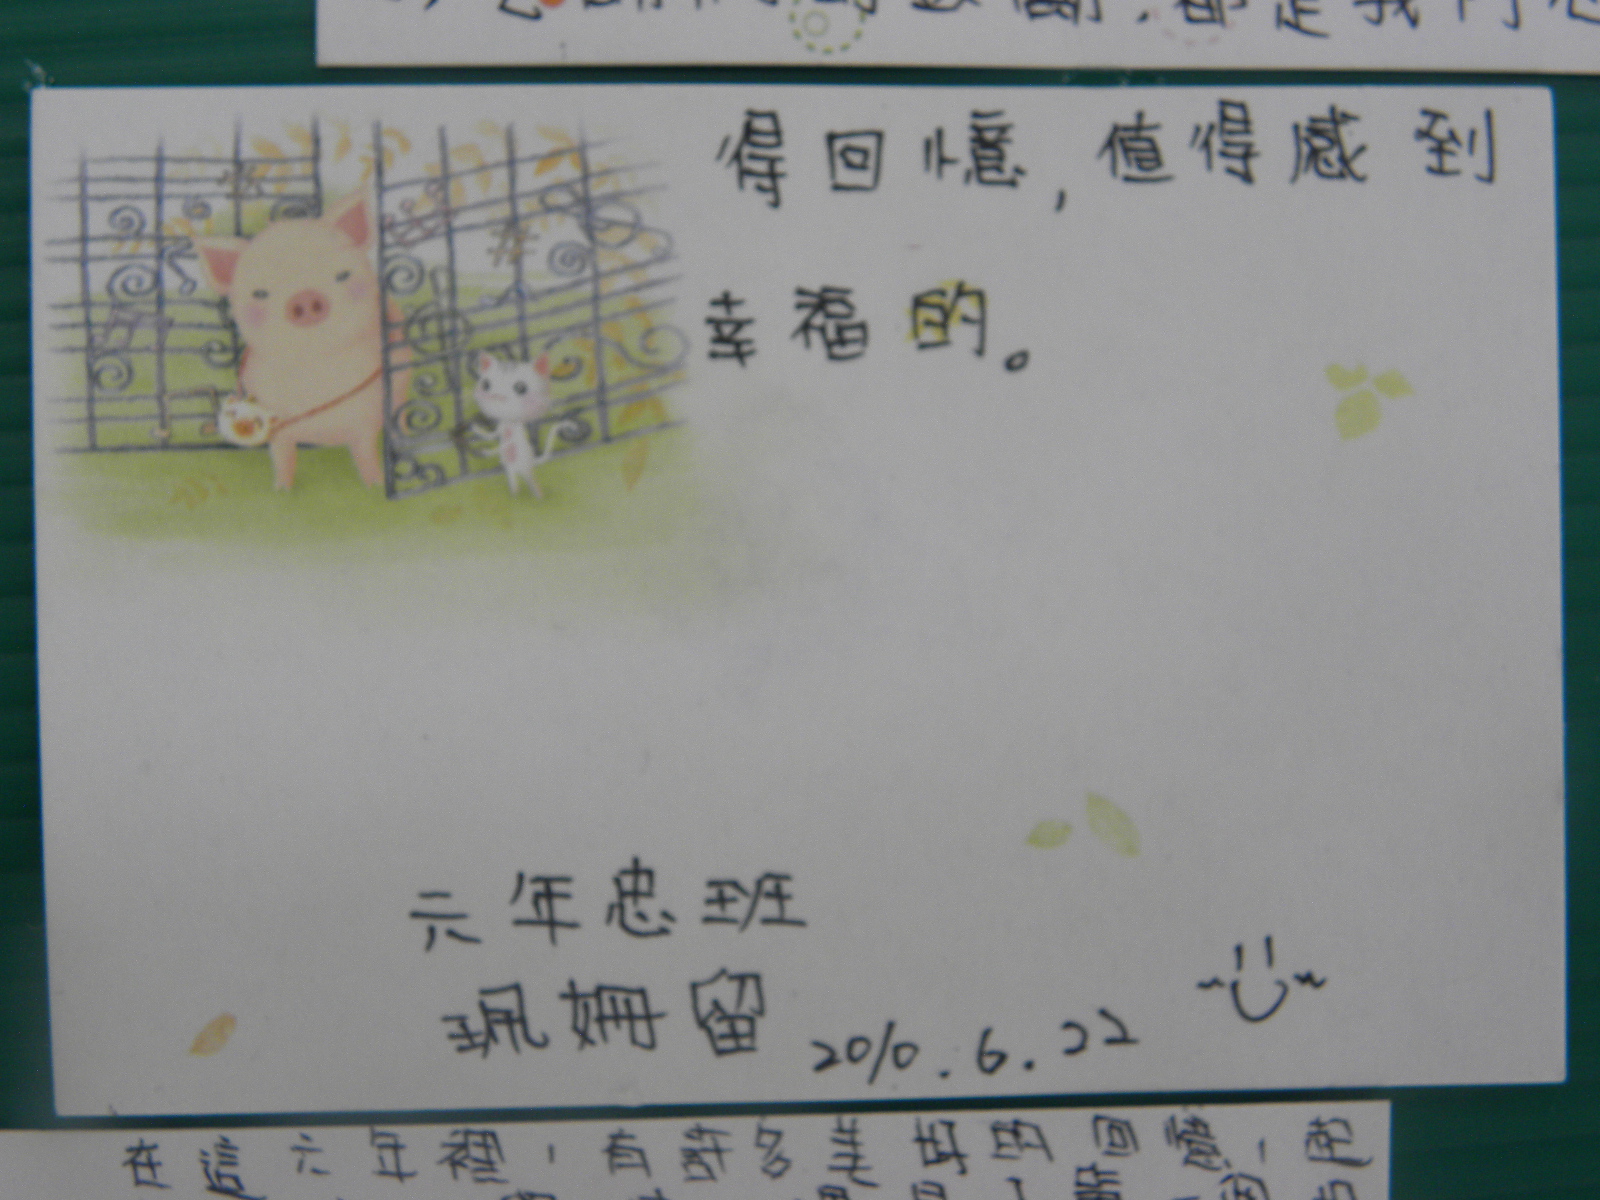 都是我們
得回憶，值得感到
幸福的。
六年忠班
珮姍留 2010.6.22
在這六年裡，有許多美好的回憶，